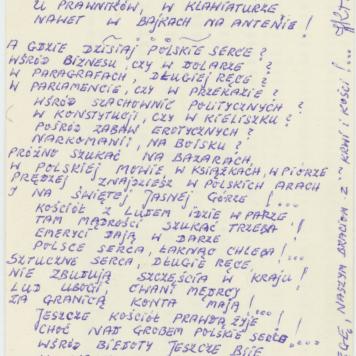 U PRAWNIKÓW, W KLAWIATURZE
NAWET W BAJKACH NA ANTENIE!
A GDZIE DZISIAJ POLSKIE SERCE?
WŚRÓD BIZNESU, CZY W DOLARZE?
W PARAGRAFACH, DŁUGIEJ RĘCE?
W PARLAMENCIE, CZY W PRZEKAZIE?
WŚRÓD SZACHOWNIC POLITYCZNYCH?
W KONSTYTUCJI, CZY W KIELISZKU?
POŚRÓD ZABAW EROTYCZNYCH?
NARKOMANII, NA BOISKU?
PRÓŻNO SZUKAĆ NA BAZARACH,
W POLSKIEJ MOWIE W KSIĄŻKACH, W PIÓRZE
PRĘDZEJ ZNAJDZIESZ W POLSKICH ARACH
I NA ŚWIĘTEJ JASNEJ GÓRZE!...
KOŚCIÓŁ Z LUDEM IDZIE W PARZE
TAM MĄDROŚCI SZUKAĆ TRZEBA!
EMERYCI DAJĄ W DARZE
POLSCE SERCA, ŁAKNĄC CHLEBA!
SZTUCZNE SERCA, DŁUGIE RĘCE
NIE ZBUDUJĄ SZCZĘŚCIA W KRAJU!
LUD UBOGI, CWANI MĘDRCY
ZA GRANICĄ KONTA MAJĄ!...
JESZCZE KOŚCIÓŁ PRAWDĄ ŻYJE!
CHOĆ NAD GROBEM POLSKIE SERCE
WŚRÓD BIEDOTY JESZCZE BIJE
NASZYM BRACIOM Z "KRWI I KOŚCI"!...